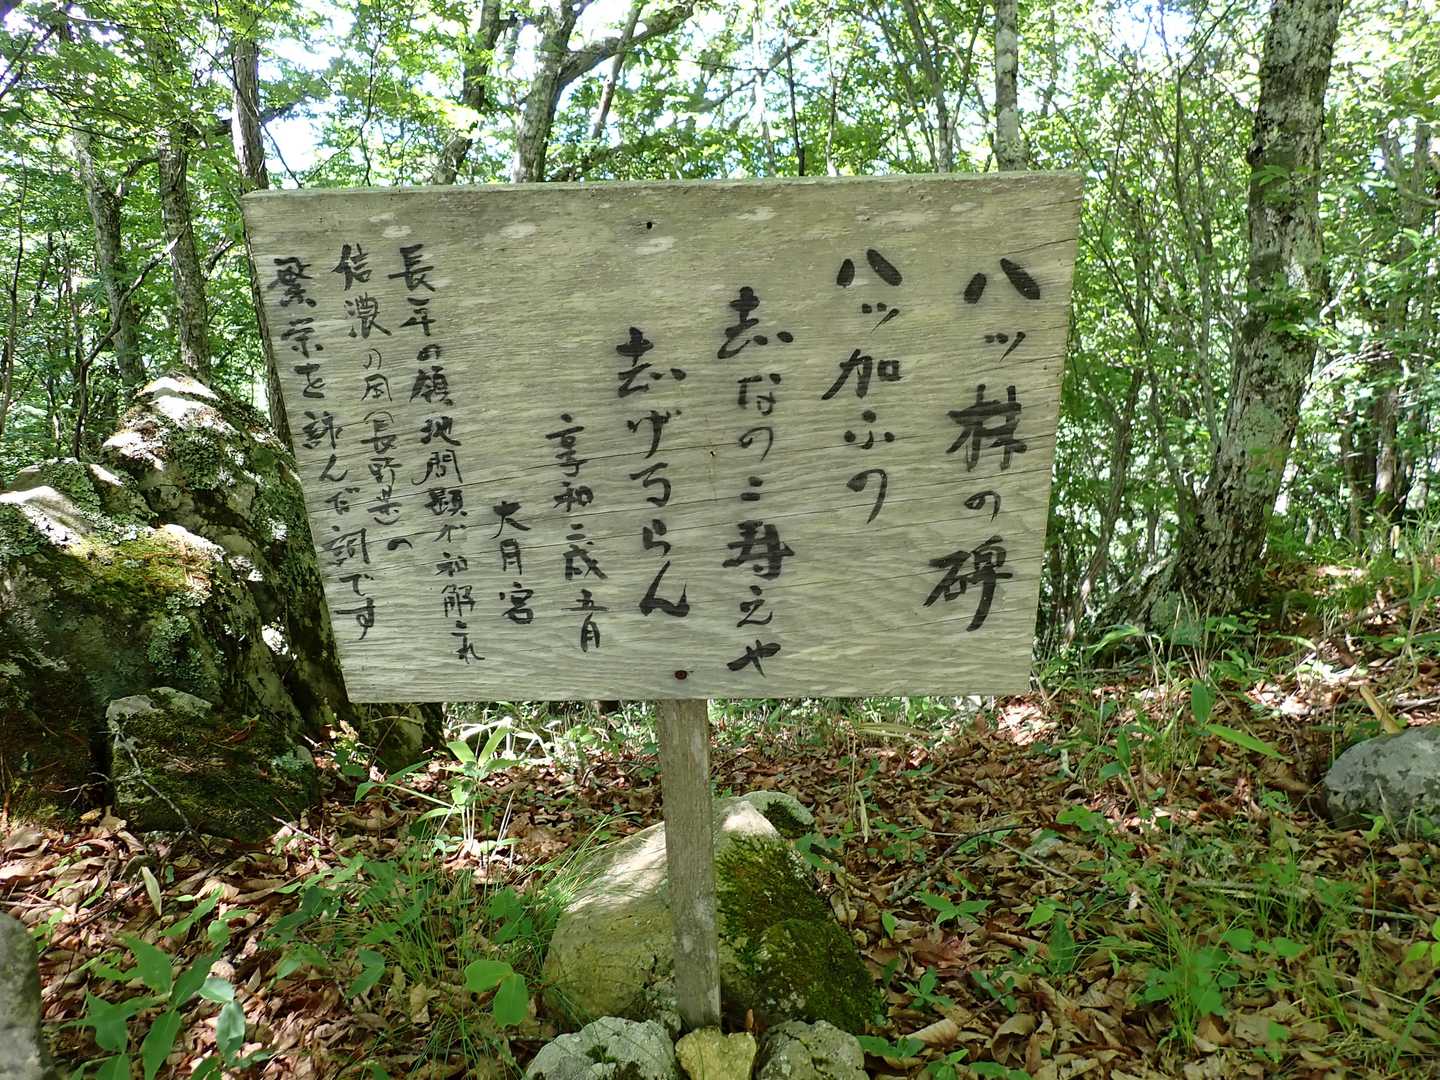 八ッ株の碑
八ッ加ふの
志なのこ寿えや
志げるらん
享和二戌五月
大月宮
長年の領地問題が和解され
信濃の国(長野県)の
繁栄を詠んだ詞です